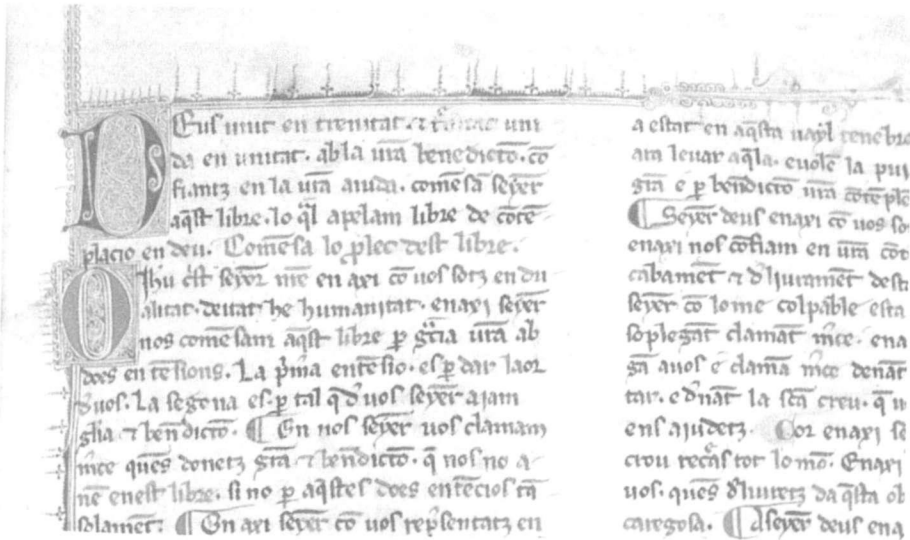 Deus uiut en trenitat. ⁊
da en unitat. ab la ura̅ benedicto̅. co̅
fiantz en la ura̅ aiuda. come̅sa̅ seye̅r
aq̅st libre. lo q̅l apelam libre de co̅te̅
placio en deu. Come̅sa lo p̅lec dest libre.
O ih̅u c̅st seyo̅r me̅ en axi co̅ uos sotz en du
alitat. deitat he humanitat. enaxi seye̅r
nos come̅sam aq̅st libre p̱ g̅cia ura̅ ab
does en te̅sions. La p̅ma ente̅sio. es p̱ dar laor
a̅uos. La segona es. p̱ tal q̅ d̅ uos seye̅r aiam
gl̅ia ⁊ ben̅dicto̅. ¶ En nos seye̅r uos clamam
m̅ce que̅s donetz gr̅a ⁊ ben̅dicto̅. q̅ nos no a
ne̅ enest libre. si no p̱ aq̅stes does ente̅cios ta̅
solame̅t. ¶ En axi seye̅r co̅ uos rep̅sentatz en
a estat en aq̅sta uayl tenebro
ara leuar aq̅la. euole̅ la pui
gr̅a e p̱ ben̅dicto̅ ura̅ co̅te̅ple
¶ Seye̅r deus enaxi co̅ uos so
enaxi nos co̅fiam en ura̅ co̅t
cabame̅t ⁊ d̅liurame̅t dest
seye̅r co̅ lome colpable esta
soplega̅t clama̅t m̅ce. ena
ga̅ auos e clama̅ m̅ce dena̅t
tar. e d̅na̅t la sc̅a creu. q̅
ens aiudetz. ¶ Cor enaxi se
crou tot lo mo̅. Enaxi
uos. que̅s d̅liuretz da q̅sta ob
caregosa. ¶ A seye̅r deus ena